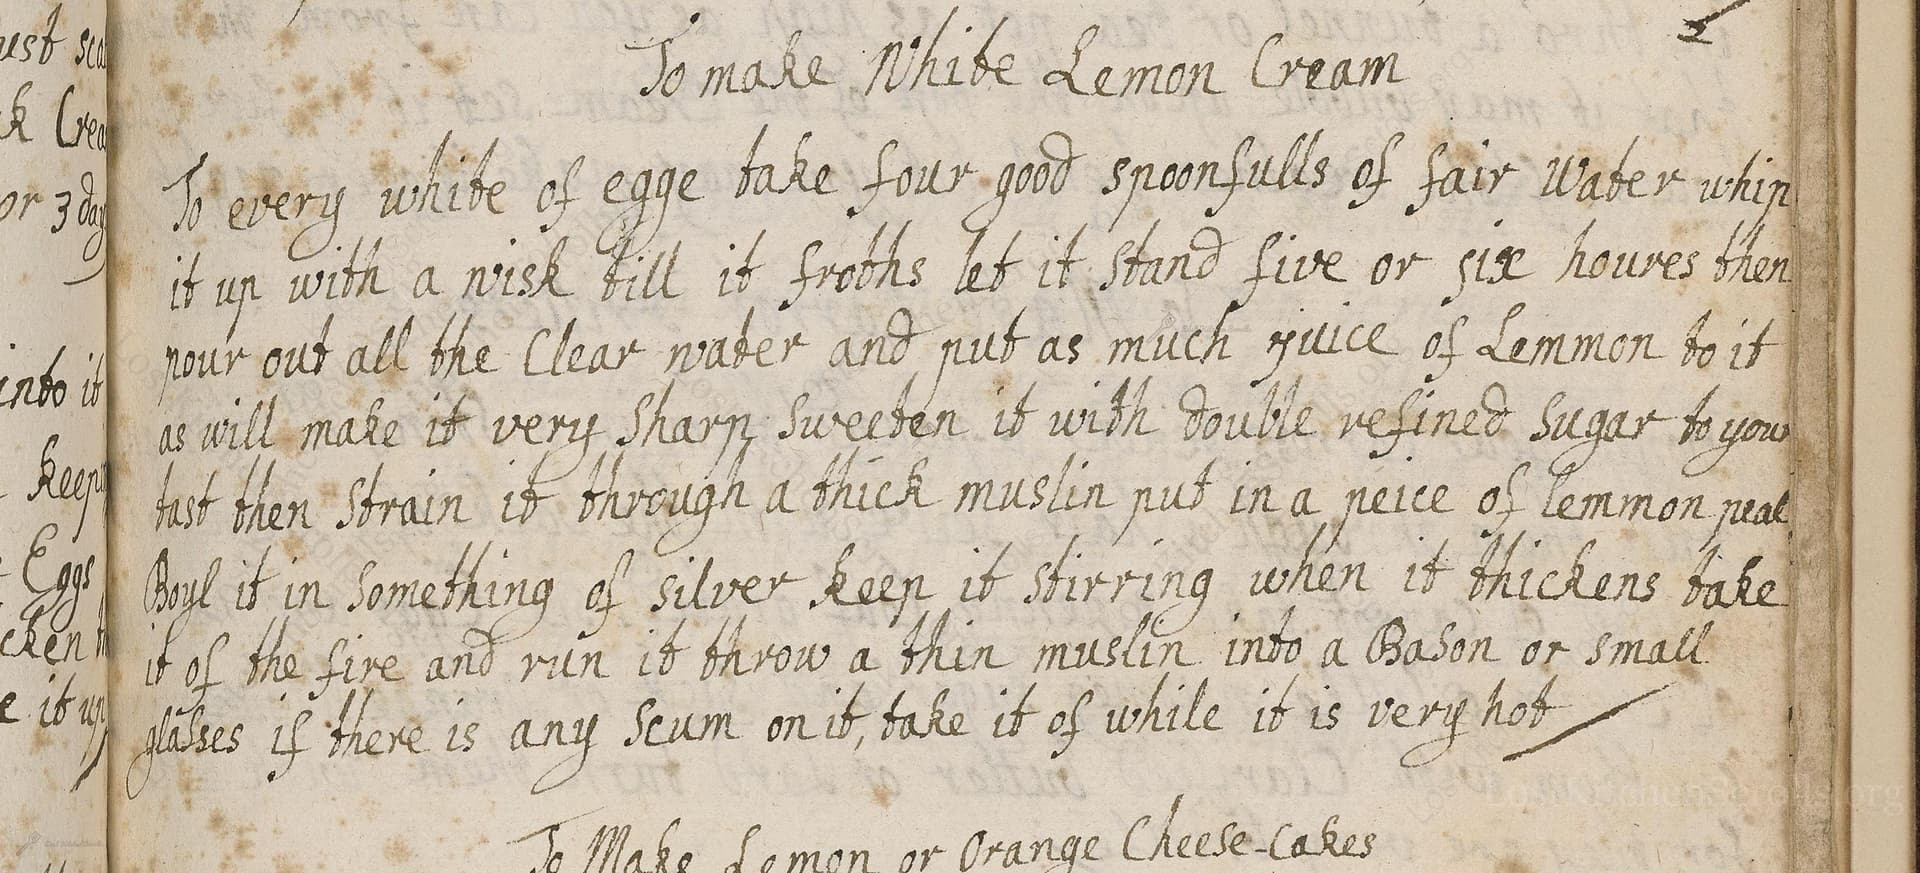 To make White Lemon Cream
To every white of egge take four good spoonfulls of fair Water whip
it up with a wisk till it froths let it stand five or six houres then
pour out all the Clear water and put as much yuice of Lemmon to it
as will make it very sharp sweeten it with double refined sugar to your
tast then strain it through a thick muslin put in a peice of lemmon peal
Boyl it in something of silver keep it stirring when it thickens take
it of the fire and run it throw a thin muslin into a Bason or small
glasses if there is any scum on it, take it of while it is very hot
To Make Lemon or Orange Cheese-Cakes
or 3 day
into it
keep
Eggs
it up